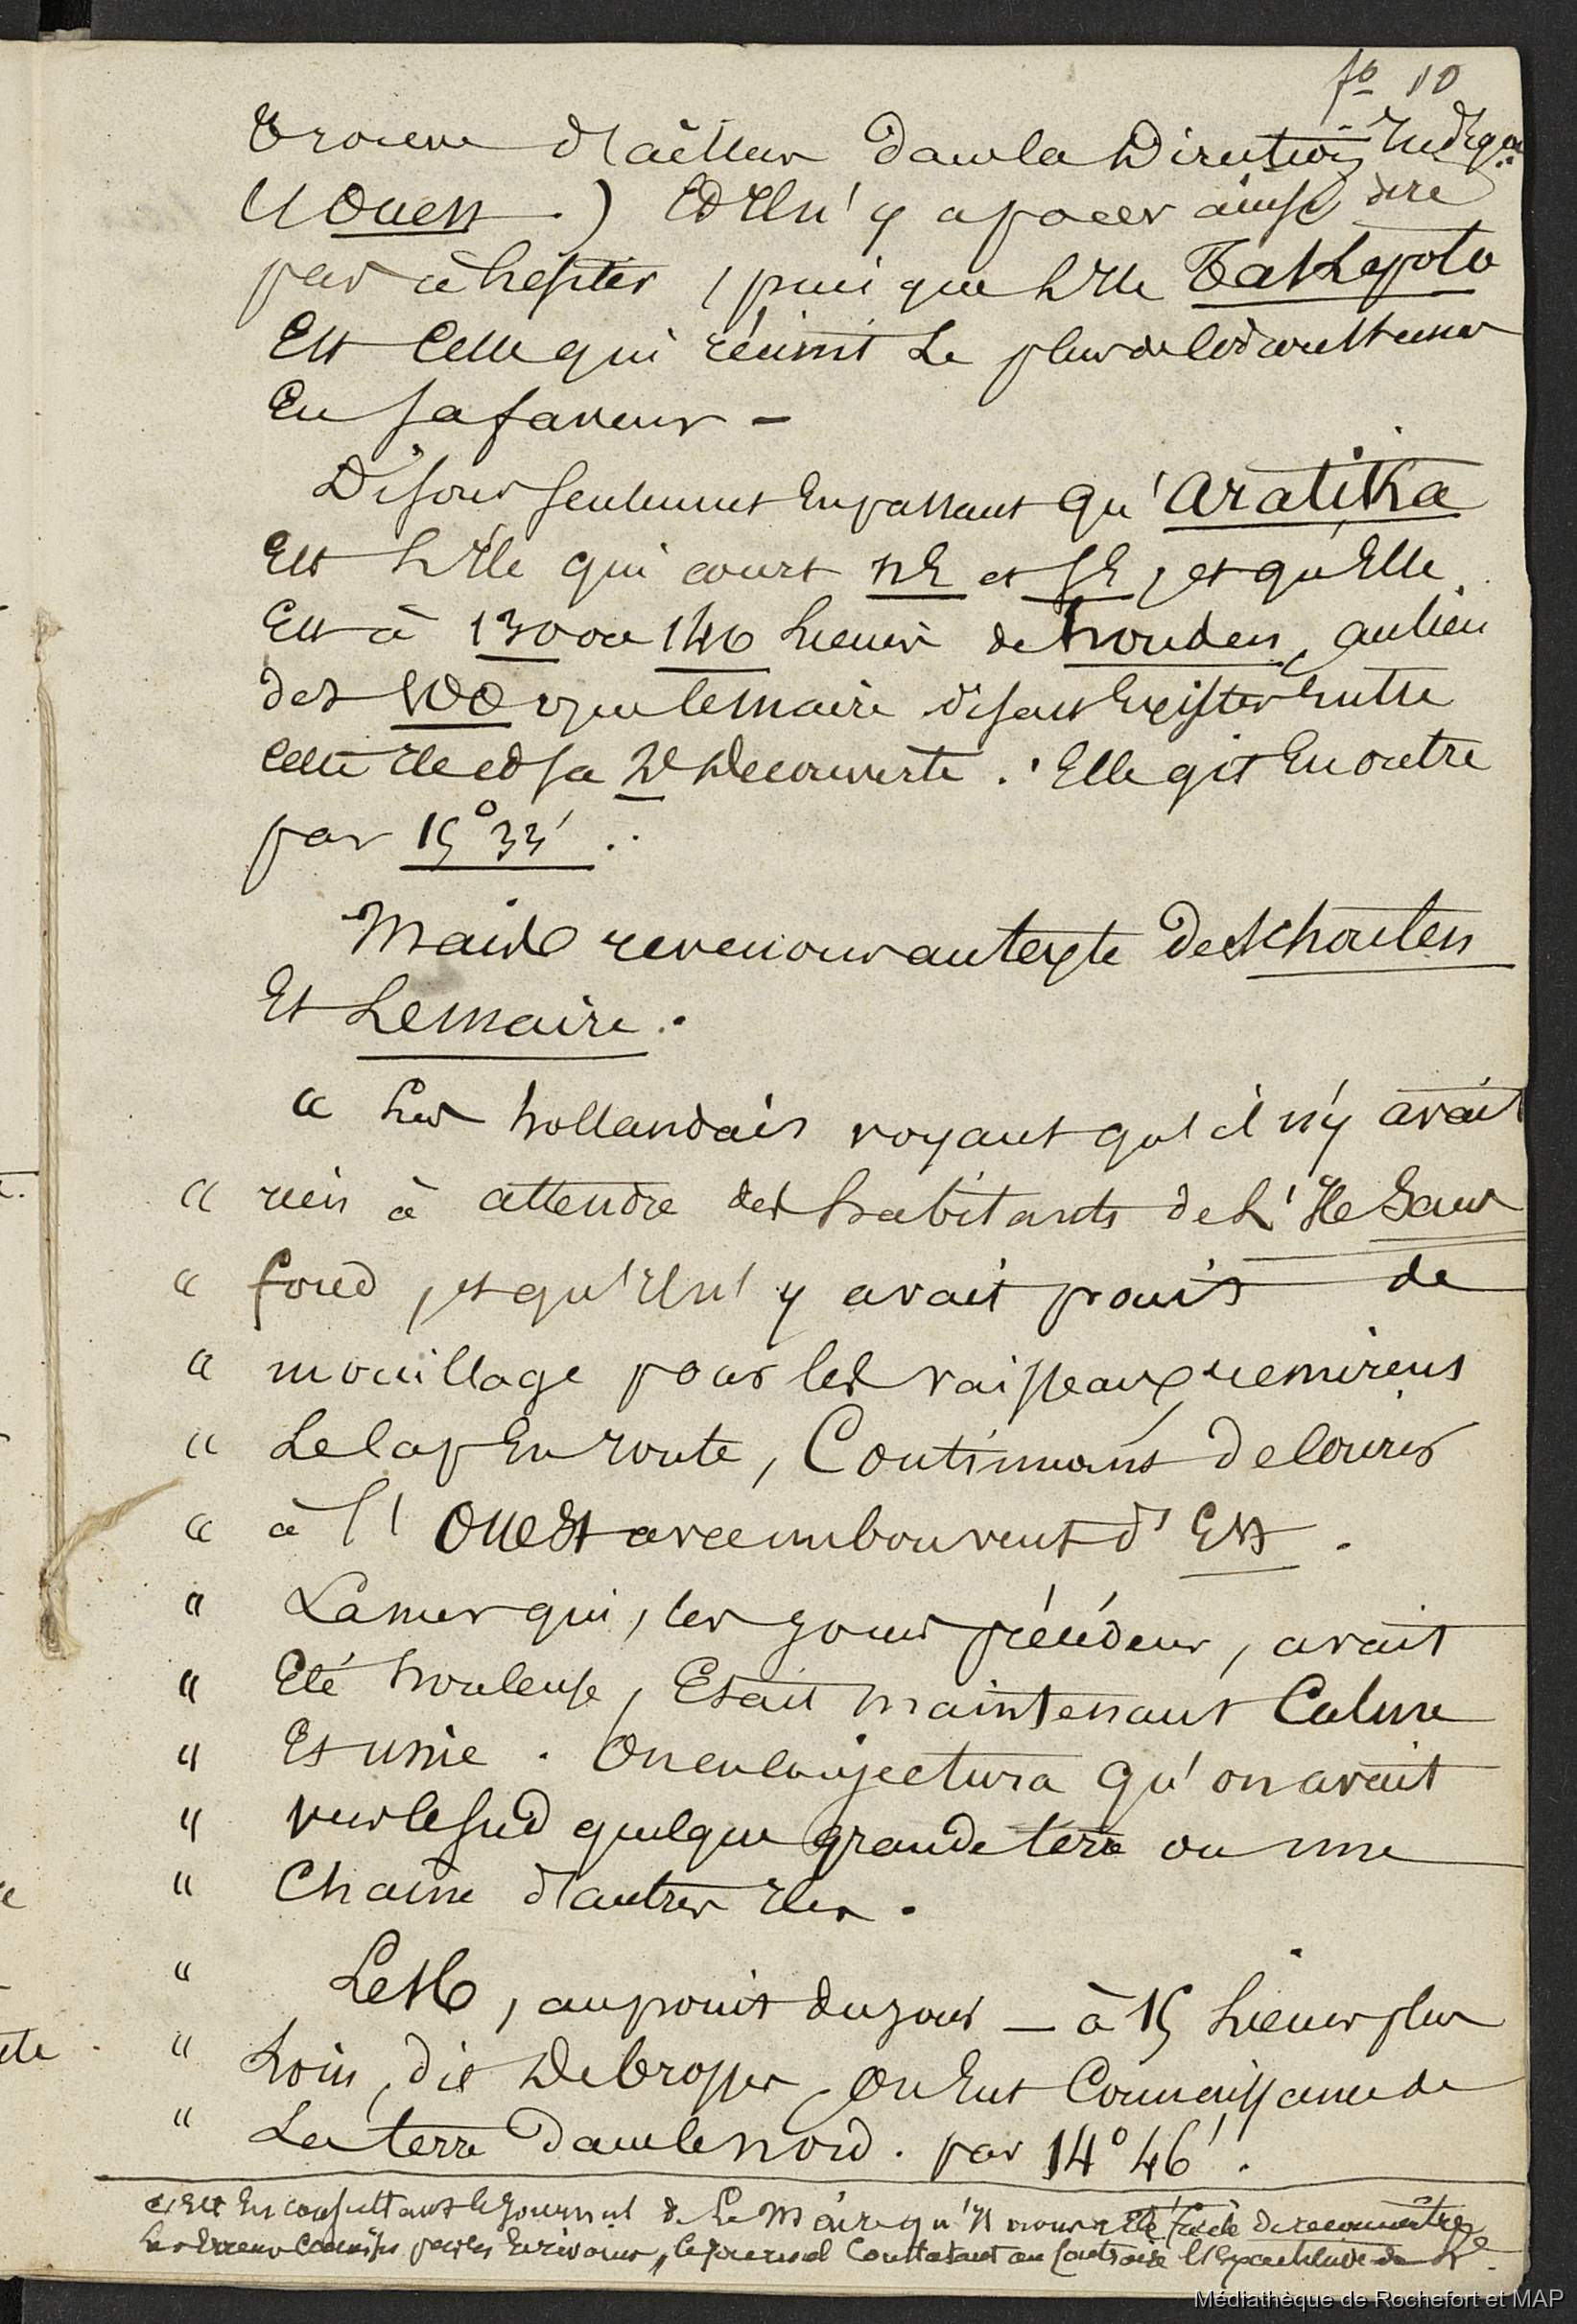 fo 10
trouve d'ailleurs dans la Direction Indiquée
(l'Ouest.) Et Il n'y a pour ainsi dire
pas à hésiter, puisque L'Ile Takapoto
Est Celle qui réunit Le plus de
En sa faveur –
Disons seulement En passant qu'Aratika
Est L'Ile qui court NE et SE, et qu'Elle
Est à 130 ou 140 Lieues de houden, au lieu
des 100 que Lemaire disait Exister Entre
Cette Ile et sa 2e Decouverte. Elle git En outre
par 15° 33'.
Mais revenons au texte de Schouten
Et Lemaire.
" Les hollandais voyant qu'il n'y avait
" rien à attendre des habitants de L'Ile Sans
" fond, et qu'Il n'y avait point de
" mouillage pour les vaisseaux, remirent
" Le Cap En route, Continuant de Courir
" à l'Ouest avec un bon vent d'Est.
" La mer qui, les jours précédens, avait
" Eté houleuse, Etait maintenant Calme
" Et unie. On en Conjectura qu'on avait
" vers le Sud quelque grande terre ou une
" Chaine d'autres Iles.
" Le 16, au point du jour – à 15 Lieues plus
" Loin, dit Debrosses, On Eut Connaissance de
" La terre dans le nord. par 14° 46'.
C'Est En consultant le Journal de Le Maire qu'Il nous a Eté facile de reconnaître
Les Erreurs Commises par les Ecrivains, le journal Constatant au Contraire l'Exactitude de
Médiathèque de Rochefort et MAP